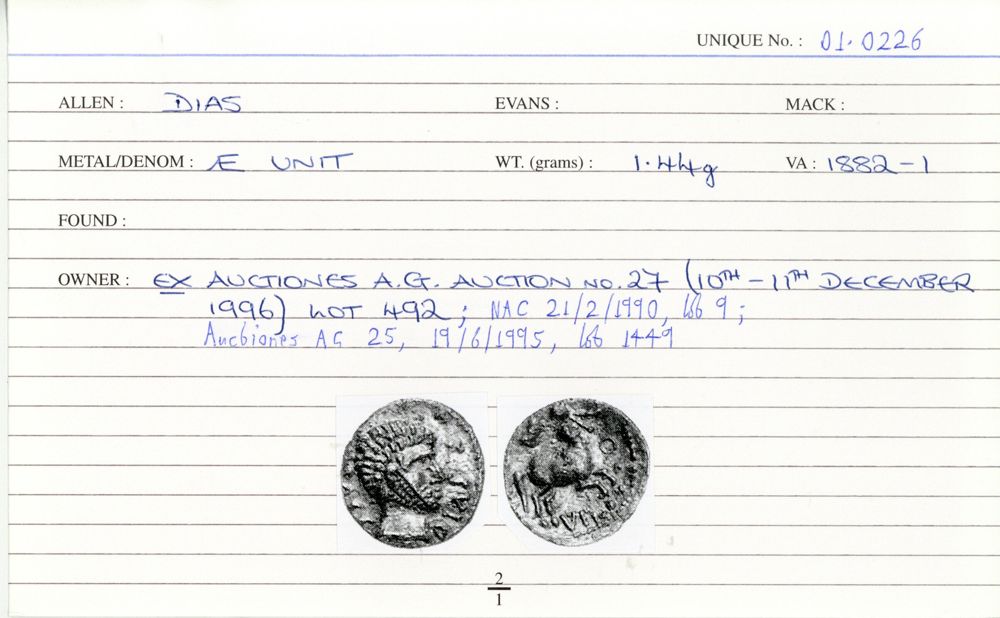 UNIQUE No. : 01·0226
ALLEN : DIAS EVANS : MACK :
METAL/DENOM : Æ UNIT WT. (grams) : 1·44g VA : 1882-1
FOUND :
OWNER : EX AUCTIONES A.G. AUCTION NO. 27 (10TH - 11TH DECEMBER
1996) LOT 492 ; NAC 21/2/1990, lot 9 ;
Auctiones AG 25, 19/6/1995, lot 1449
DIAS
VERI
2
1